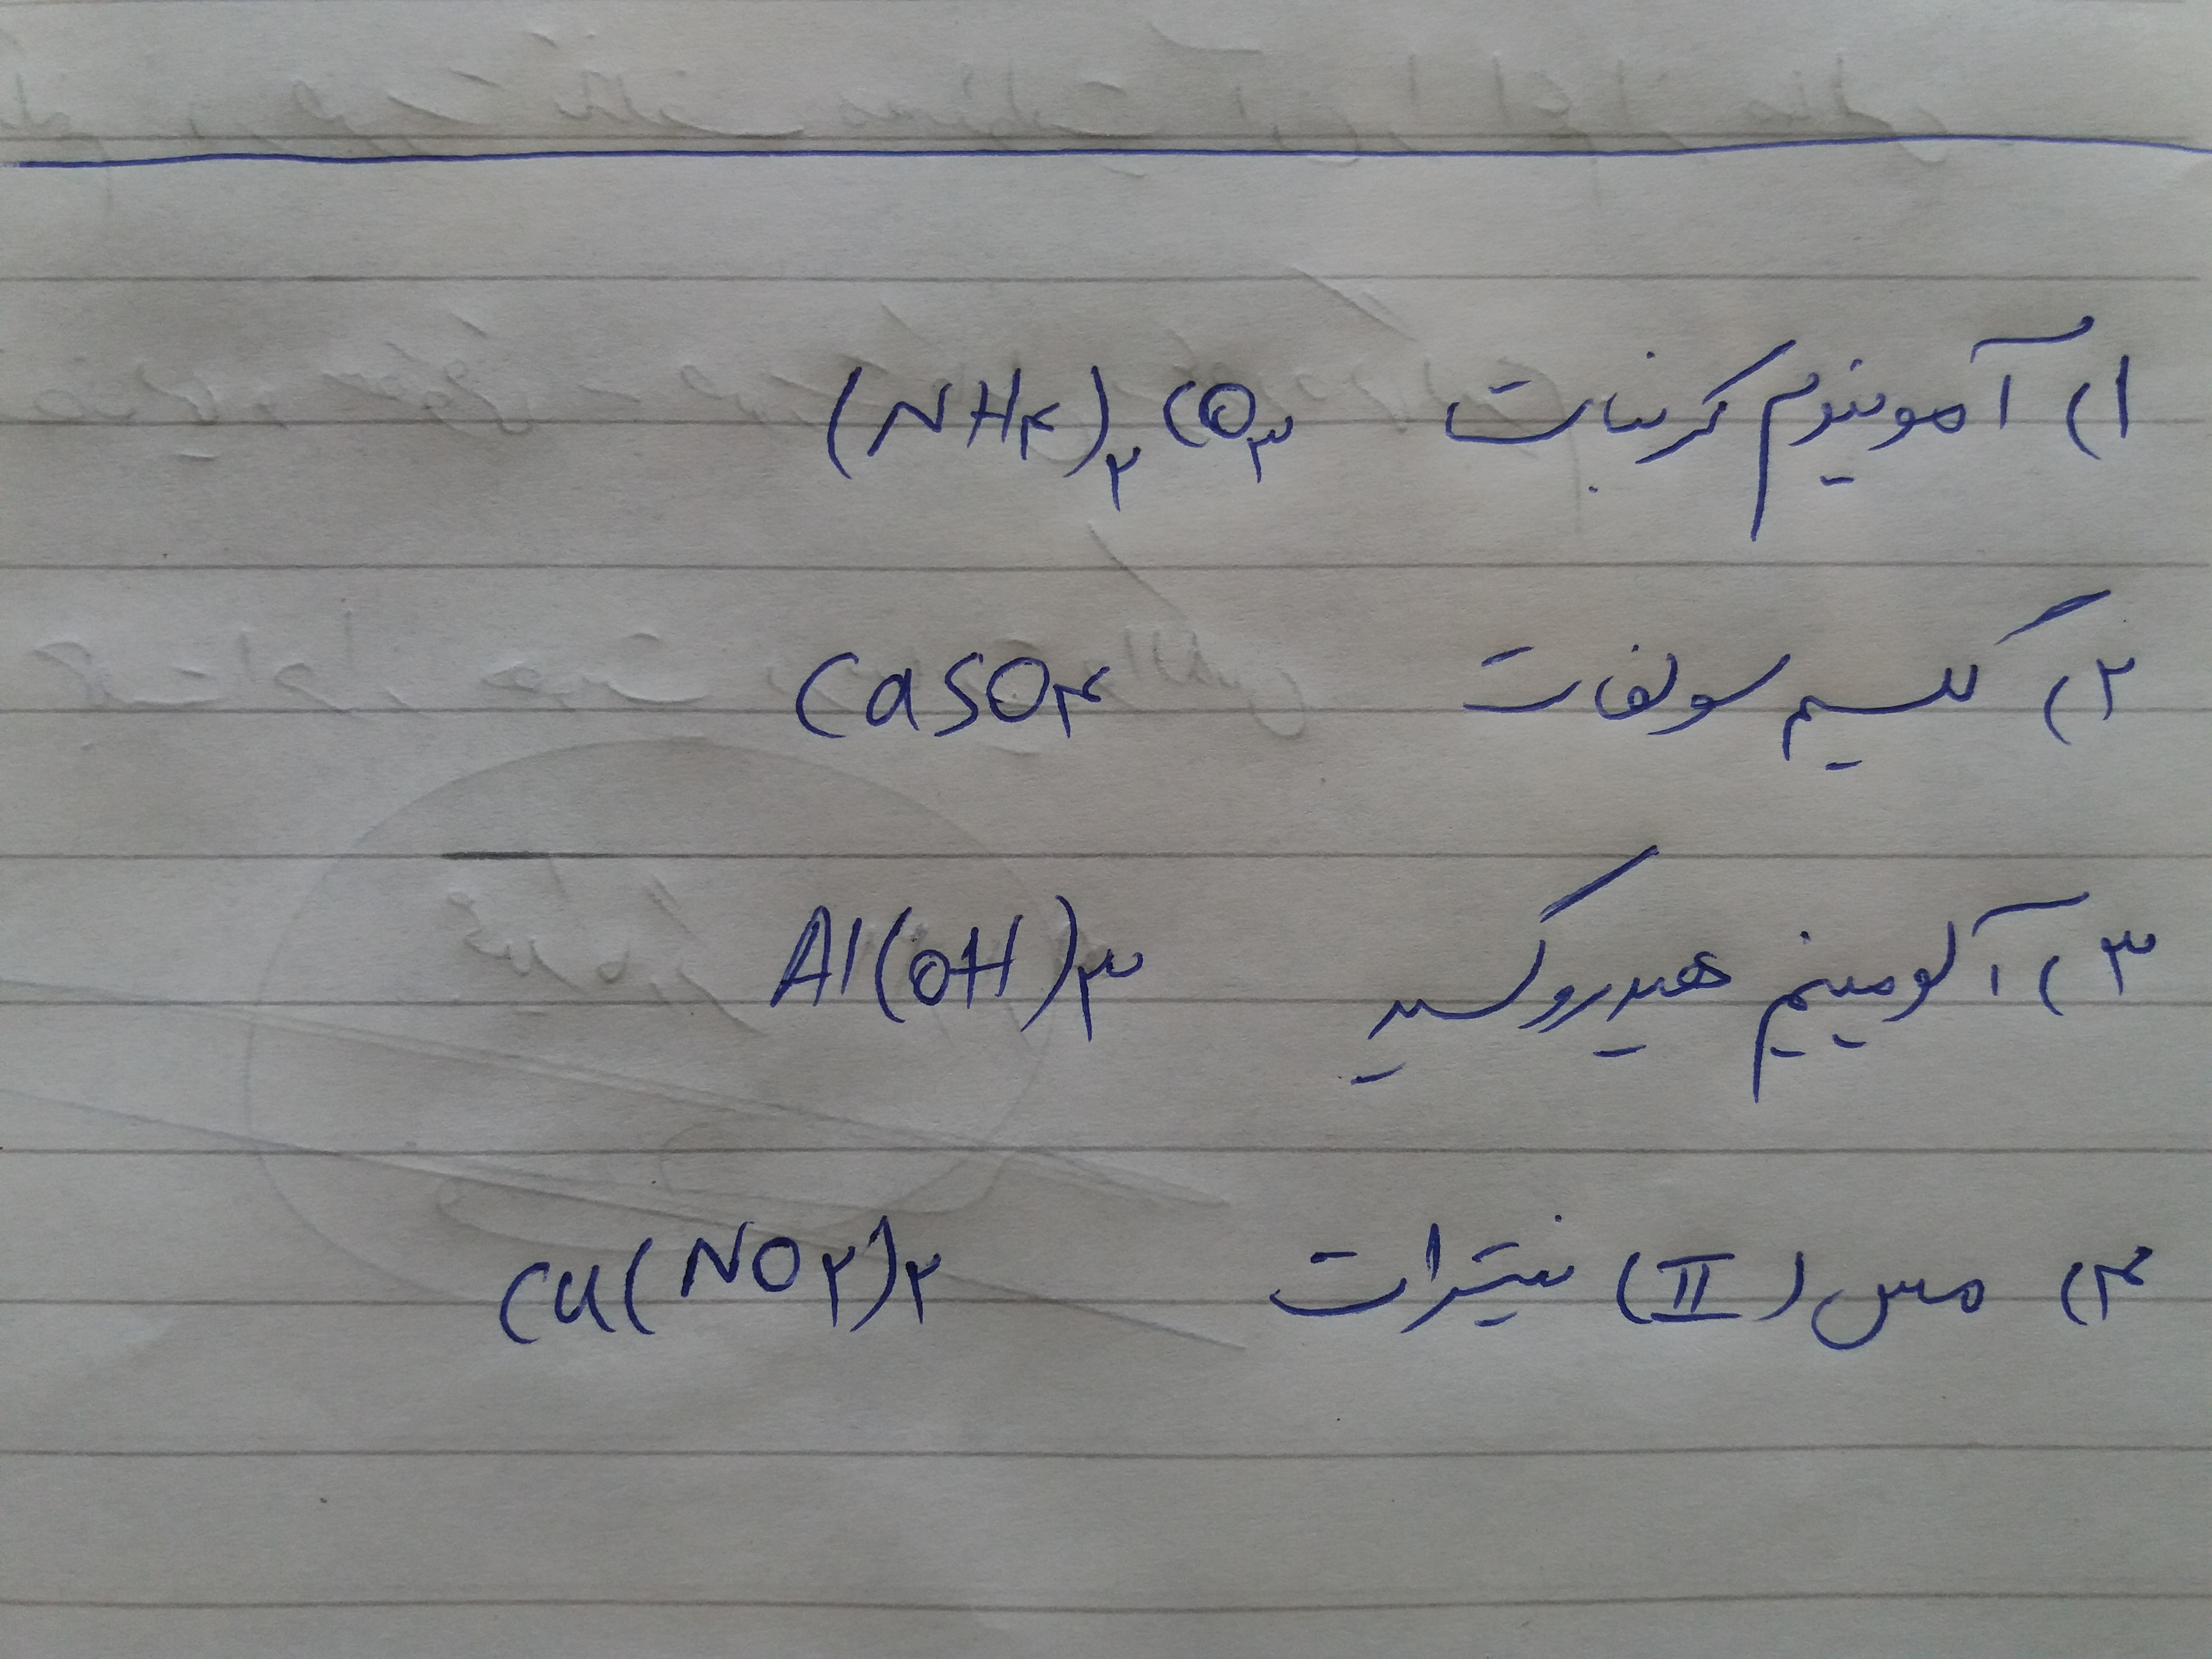 ۱) آمونیوم کربنات (NH۴)۲CO۳
۲) کلسیم سولفات CaSO۴
۳) آلومینیم هیدروکسید Al(OH)۳
۴) مس (II) نیترات Cu(NO۲)۲